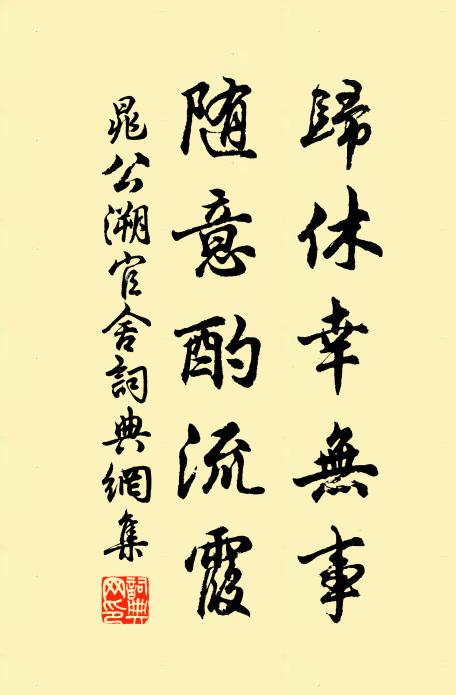 歸休幸無事
随意酌流霞
晁公溯官舍詞典網集
詞典網印